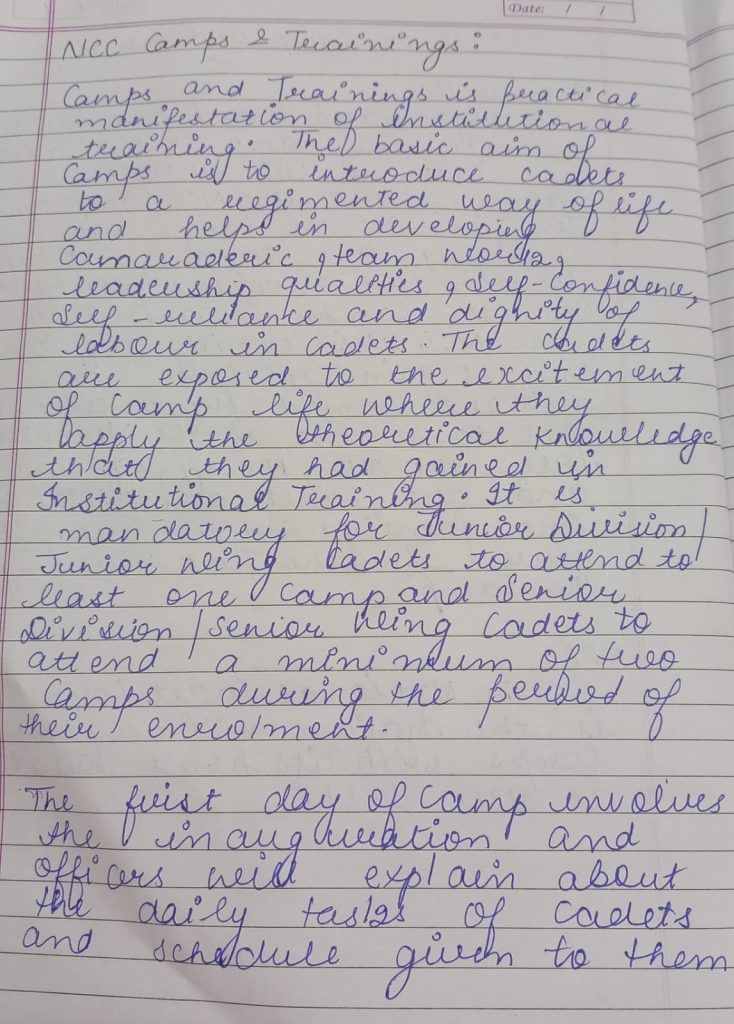 Date: / /
NCC Camps & Trainings:
Camps and Trainings is practical
manifestation of institutional
training. The basic aim of
Camps is to introduce cadets
to a regimented way of life
and helps in developing
Camaraderic, team work,
leadership qualities, Self-Confidence,
Self-reliance and dignity of
labour in cadets. The cadets
are exposed to the excitement
of camp life where they
apply the theoretical knowledge
that they had gained in
Institutional Training. It is
mandatory for Junior Division/
Junior Wing Cadets to attend to
least one camp and Senior
Division/Senior Wing Cadets to
attend a minimum of two
Camps during the period of
their enrolment.
The first day of camp involves
the inauguration and
officers will explain about
the daily tasks of cadets
and schedule given to them